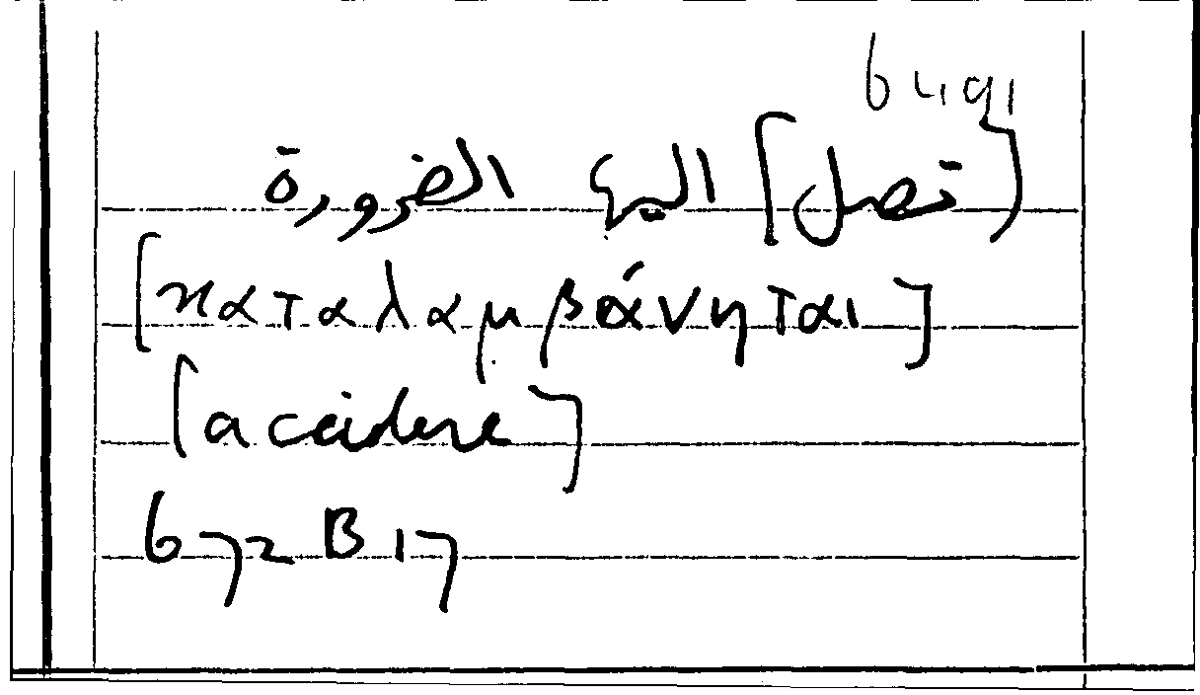 [تصل] اليه الضرورة
[καταλαμβάνηται]
[accidere]
672 B 17